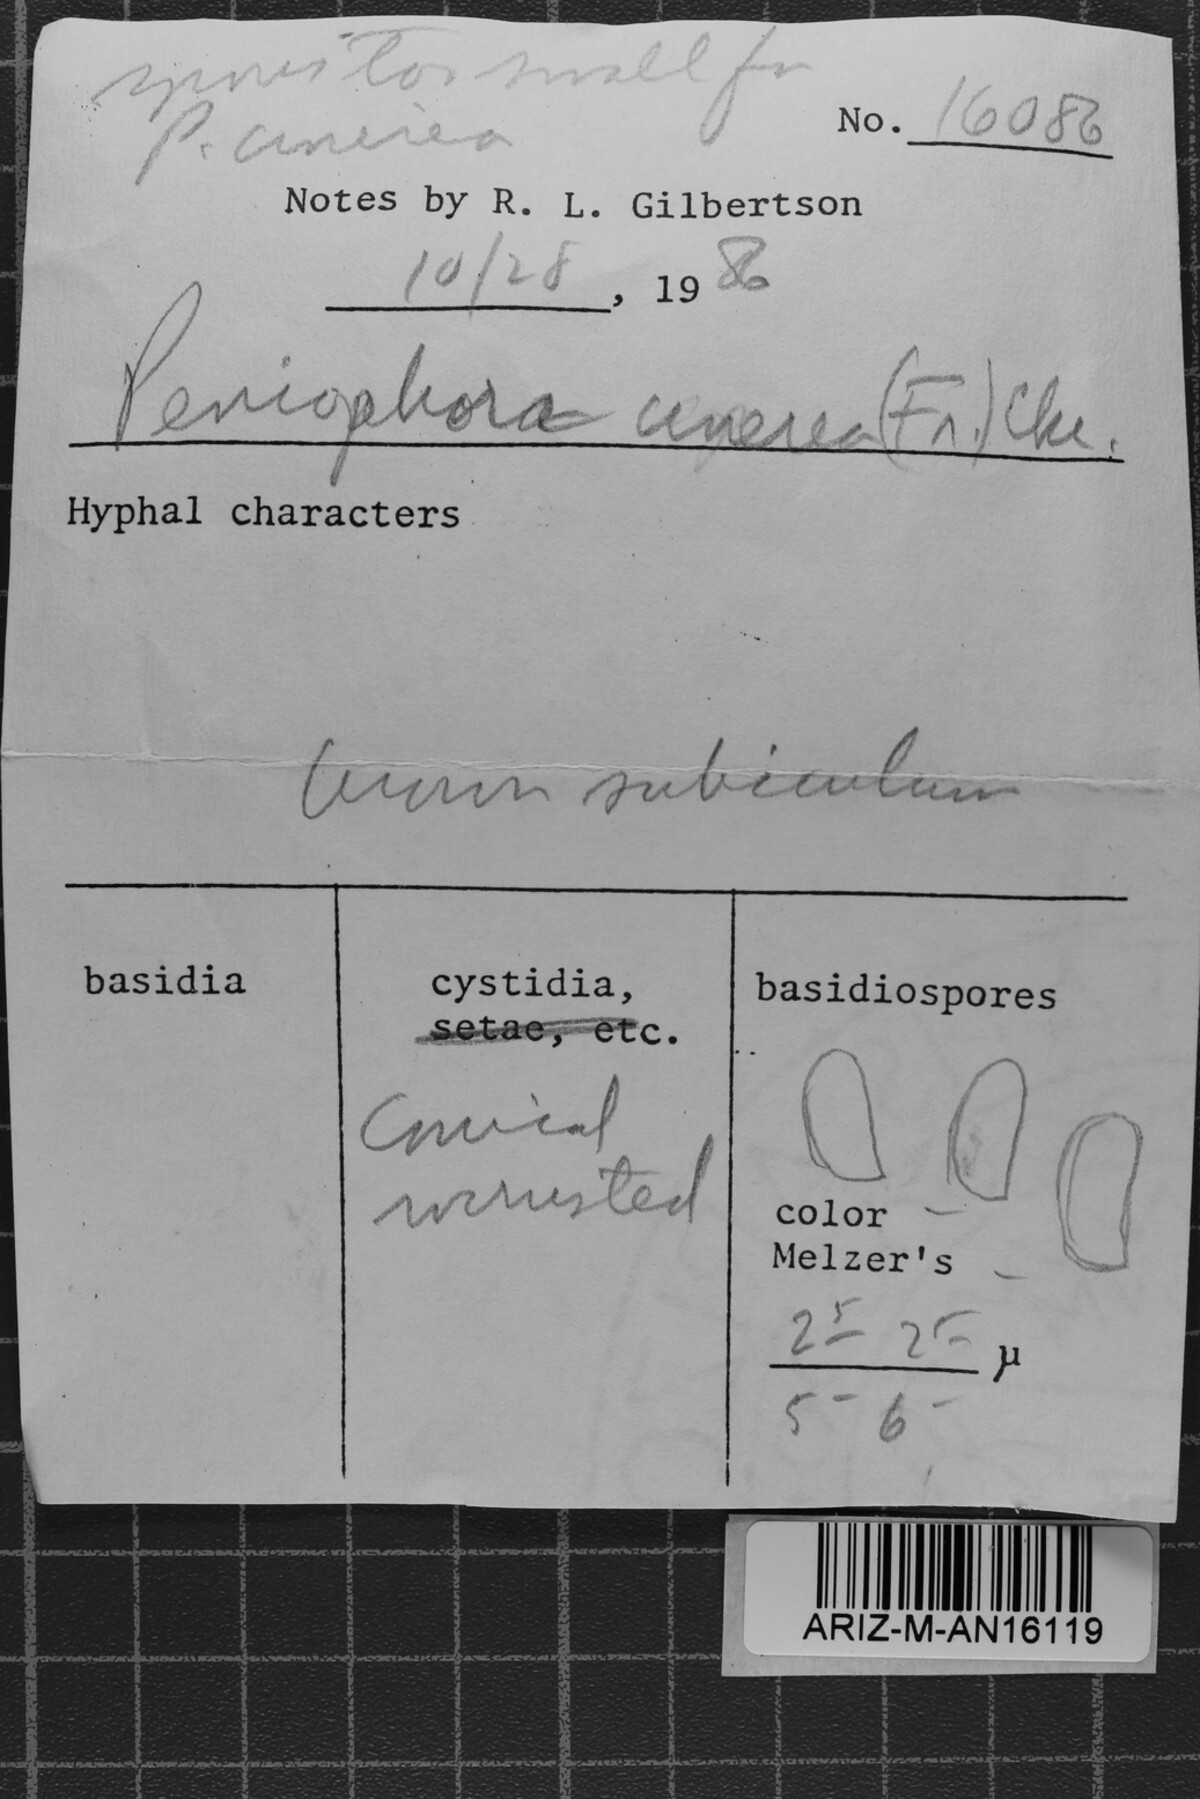 spores too small for
P. cinerea
No. 16086
Notes by R. L. Gilbertson
10/28, 1986
Peniophora cinerea (Fr.) Cke.
Hyphal characters
brown subiculum
basidia
cystidia,
setae, etc.
conical
incrusted
basidiospores
color -
Melzer's -
2⁵- 2⁵- µ
5- 6-
ARIZ-M-AN16119